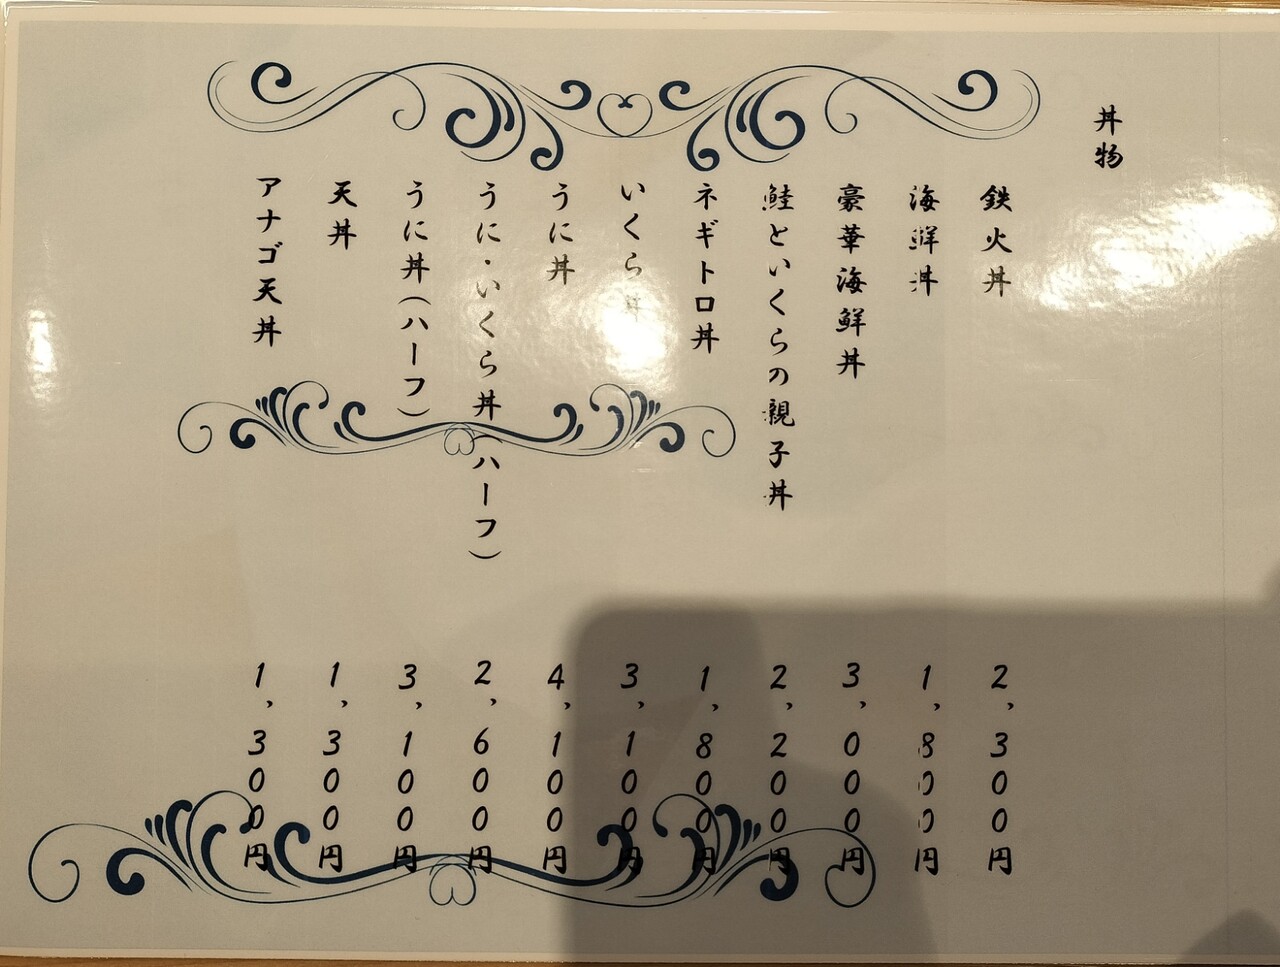 丼物
鉄火丼 2,300円
海鮮丼 1,800円
豪華海鮮丼 3,000円
鮭といくらの親子丼 2,200円
ネギトロ丼 1,800円
いくら丼 3,100円
うに丼 4,100円
うに・いくら丼(ハーフ) 2,600円
うに丼(ハーフ) 3,100円
天丼 1,300円
アナゴ天丼 1,300円